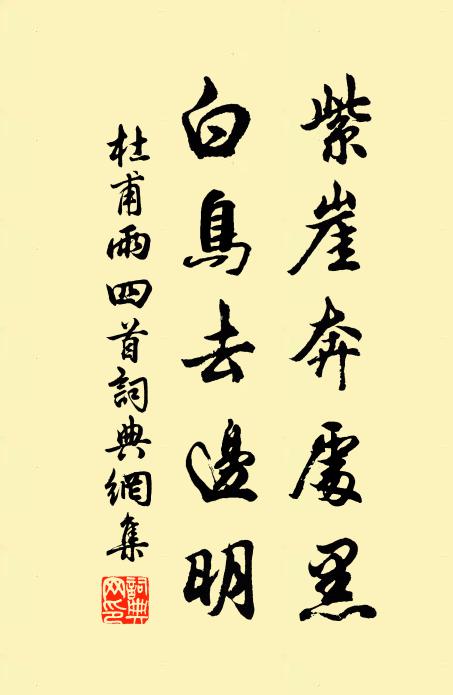 紫崖奔處黑
白鳥去邊明
杜甫雨四首詞典網集
詞典网印